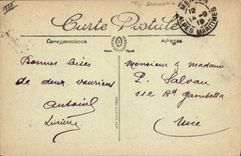 Carte Postale
Correspondance
Adresse
12
14-9
ALPES MARITIMES
Bonnes bises
de deux vauriens
Antoine
Lucien
Monsieur & madame
P. Salvan
112 Bd Gambetta
Nice